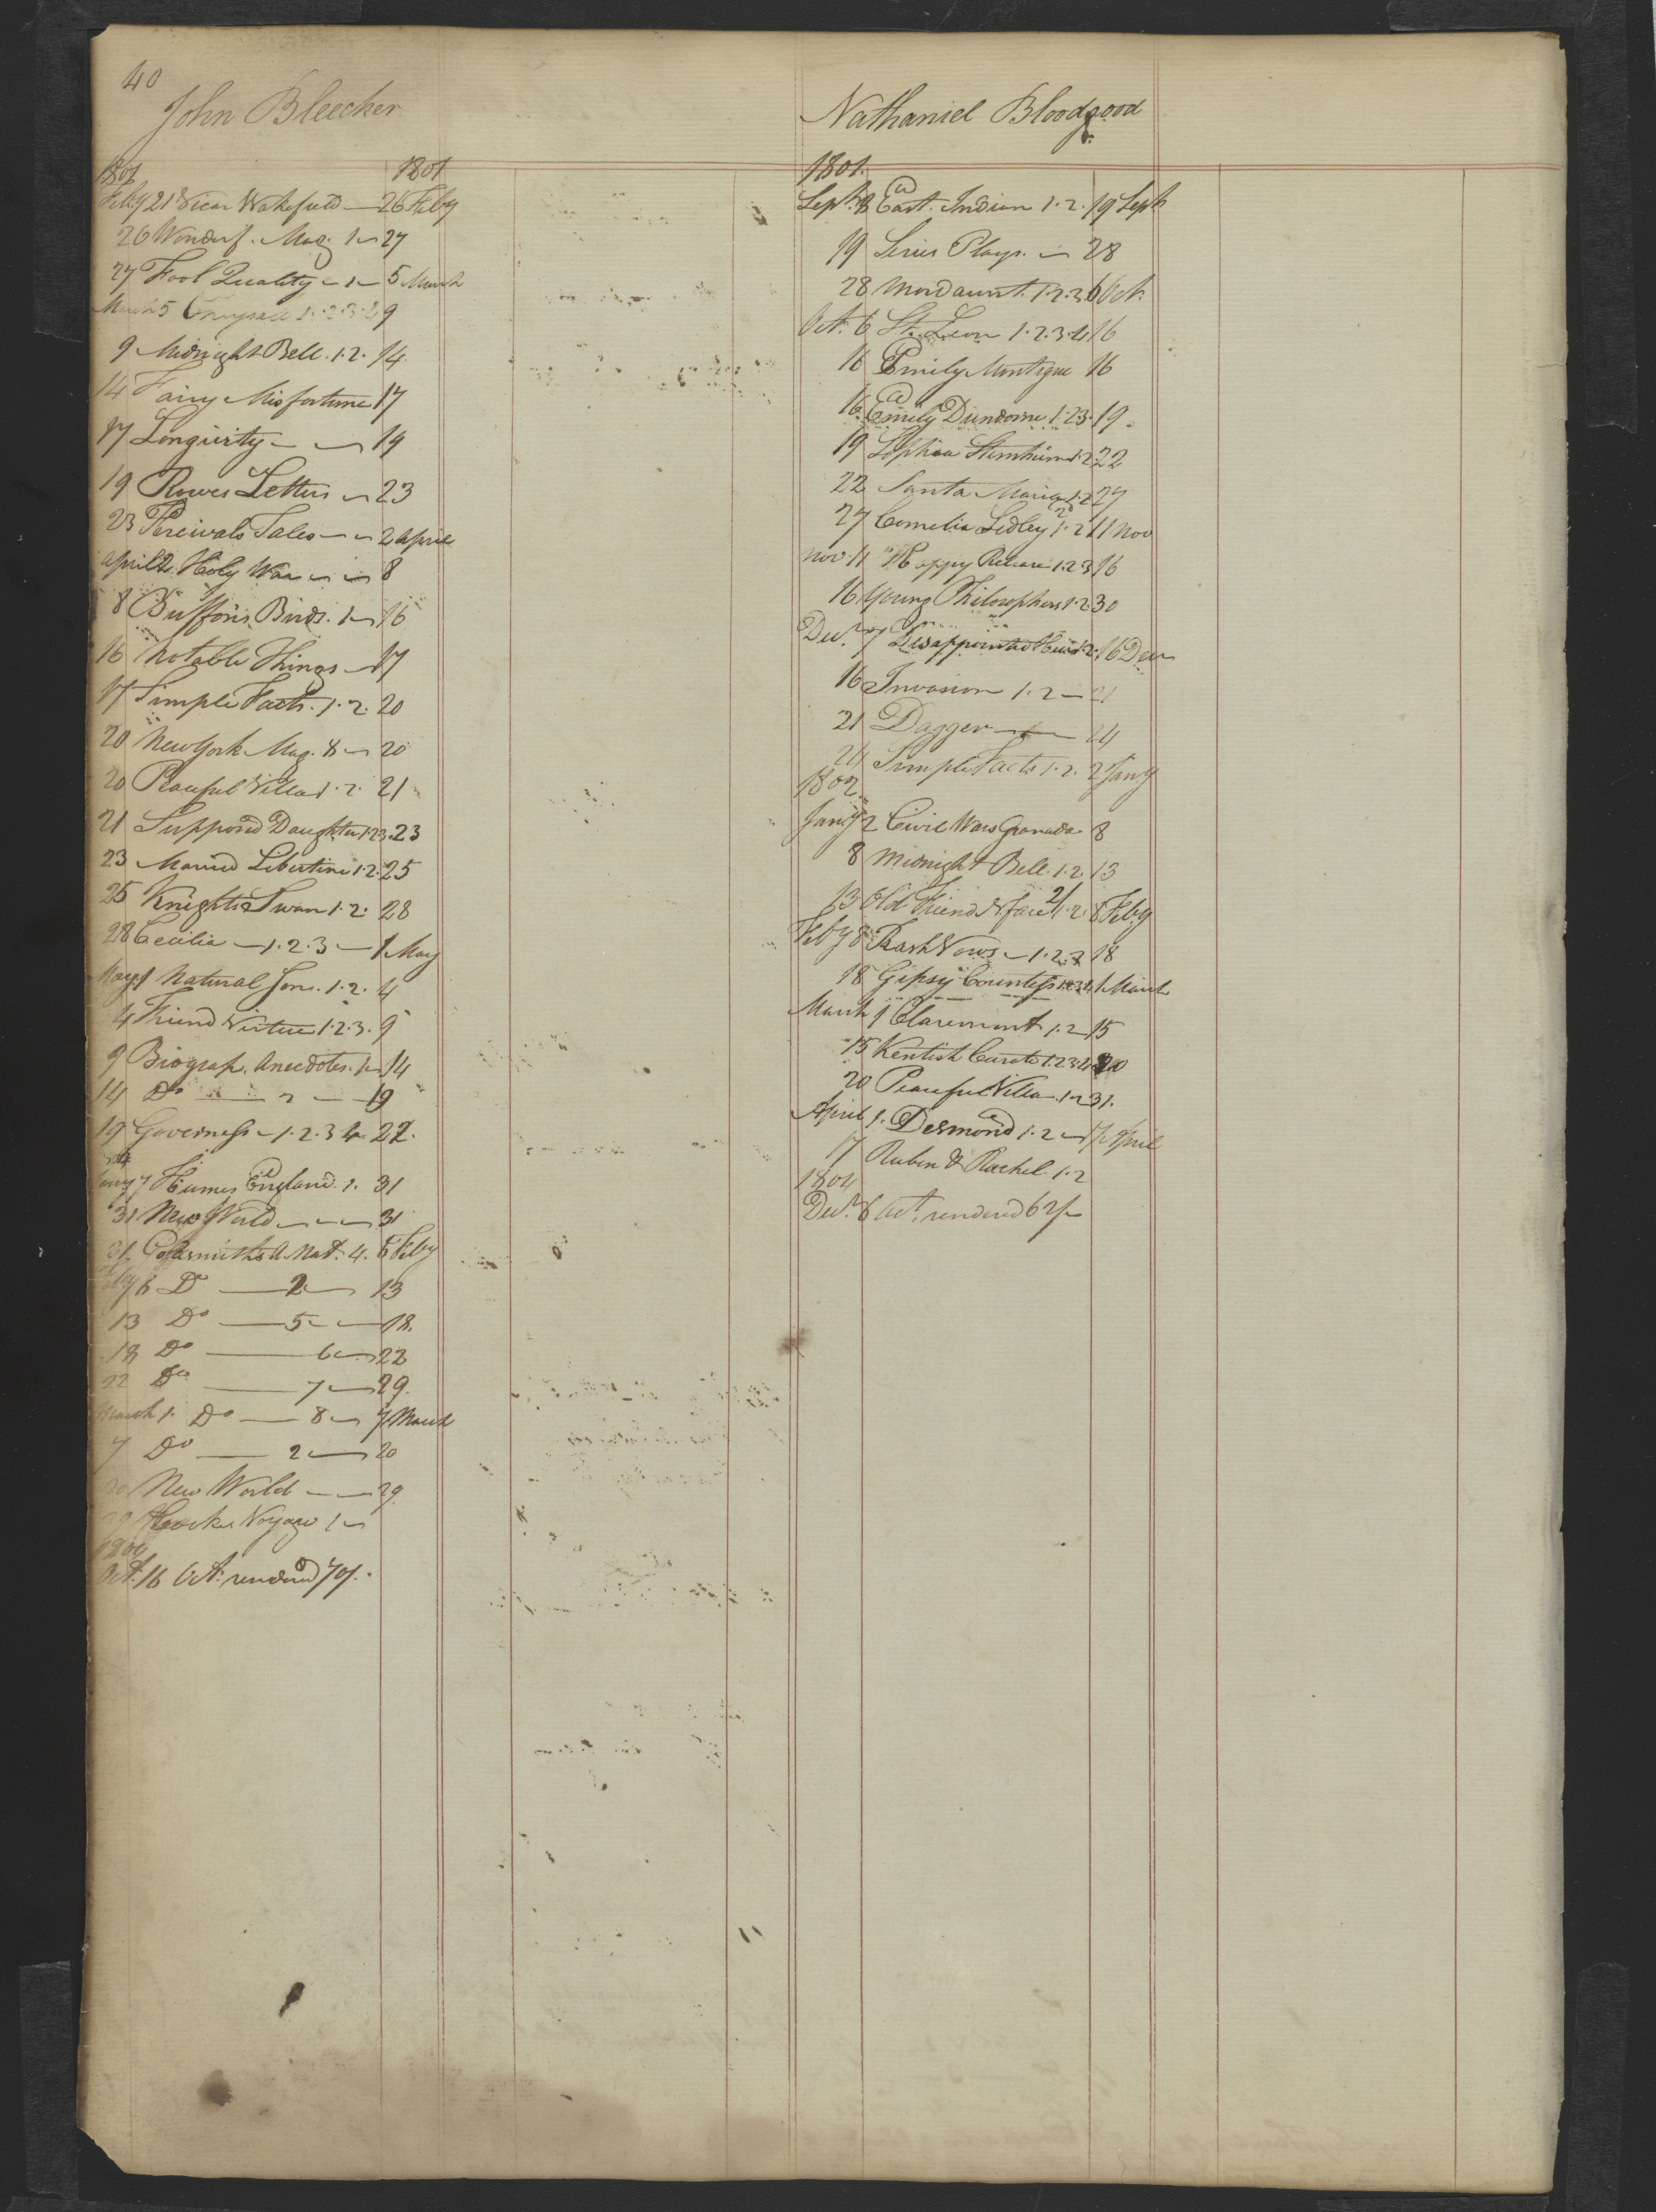 40
John Bleecker
1801 1801
Feby 21 Vicar Wakefield — 26 Feby
26 Wonderf. Mag. 1 — 27
27 Fool Quality — 1 — 5 March
March 5 Chrysall 1. 2. 3. 4 9
9 Midnight Bell. 1. 2. 14
14 Fairy Misfortune 17
17 Longivity — — 19
19 Rowes Letters — 23
23 Percivals Tales — — 2 April
April 2 Holy War — — 8
8 Buffons Birds. 1 — 16
16 Notable Things — 17
17 Simple Facts. 1. 2. 20
20 New York Mag. 8 — 20
20 Peaceful Villa 1. 2. 21
21 Supposed Daughter 1. 2 3. 23
23 Married Libertine 1. 2. 25
25 Knights Swan 1. 2. 28
28 Cecilia — 1. 2. 3 — 1 May
May 1 Natural Son. 1. 2. 4
4 Friend Virtue 1. 2. 3. 9
9 Biograp. Anecdotes. 1 — 14
14 Do — 2 — 19
19 Governess — 1. 2. 3 4 22.
7 Humes England. 1. 31
31 New World — — — 31
31. Goldsmiths A. Nat. 4. 6 Feby
Feby 6 Do — 2 — 13
13 Do — 5 — 18.
18 Do — 6 — 22
22 Do — 7 — 29.
March 1. Do — 8 — 7 March
7 Do — 2 — 20
20 New World — — 29.
29 Cooks Voyage 1 —
1804
Oct. 16 Act. rendered 70/.
Nathaniel Bloodgood
1801.
Sept. 8 East. Indian 1. 2. 19 Sept
19 Series Plays. — 28
28 Mordaunt. 1. 2. 3 6 Oct.
Oct. 6 St. Leon 1. 2. 3. 4 16
16 Emily Montague 16
16. Emily Dundorne. 1. 2 3. 19.
19 Sophia Sternheim 1. 2 22
22 Santa Maria 1. 2 27
27 Cornelia Sedley 1. 2 11 Nov
Nov. 11 Happy Release 1. 2 3 16
16 Young Philosophers 1. 2. 30
Decr. 7 Disappointed Heir 1. 2. 16 Decr
16 Invasion 1. 2 — 21
21 Dagger — — 24
24 Simple Facts 1. 2. 2 Jany
1802
Jany 2 Civil Wars Granada 8
8 Midnight Bell. 1. 2 13
13 Old Friend N face 2/ 1. 2. 8 Feby
Feby 8 Rash Vows — 1. 2. 3 18
18 Gipsy Countess 1. 2 3 4. 1 March
March 1 Claremont 1. 2 15
15 Kentish Curate 1. 2 3 4. 20
20 Peaceful Villa. 1. 2 31.
April 1. Desmond 1. 2 — 17 April
17 Ruben & Rachel. 1. 2
1804
Decr. 6 Act. rendered 62/